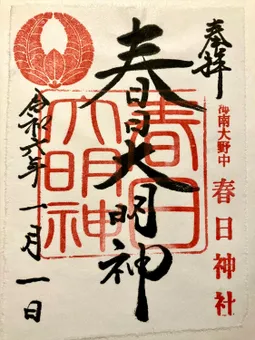 奉拝
海南大野中
春日神社
春日大明神
春日大明神
令和六年一月一日